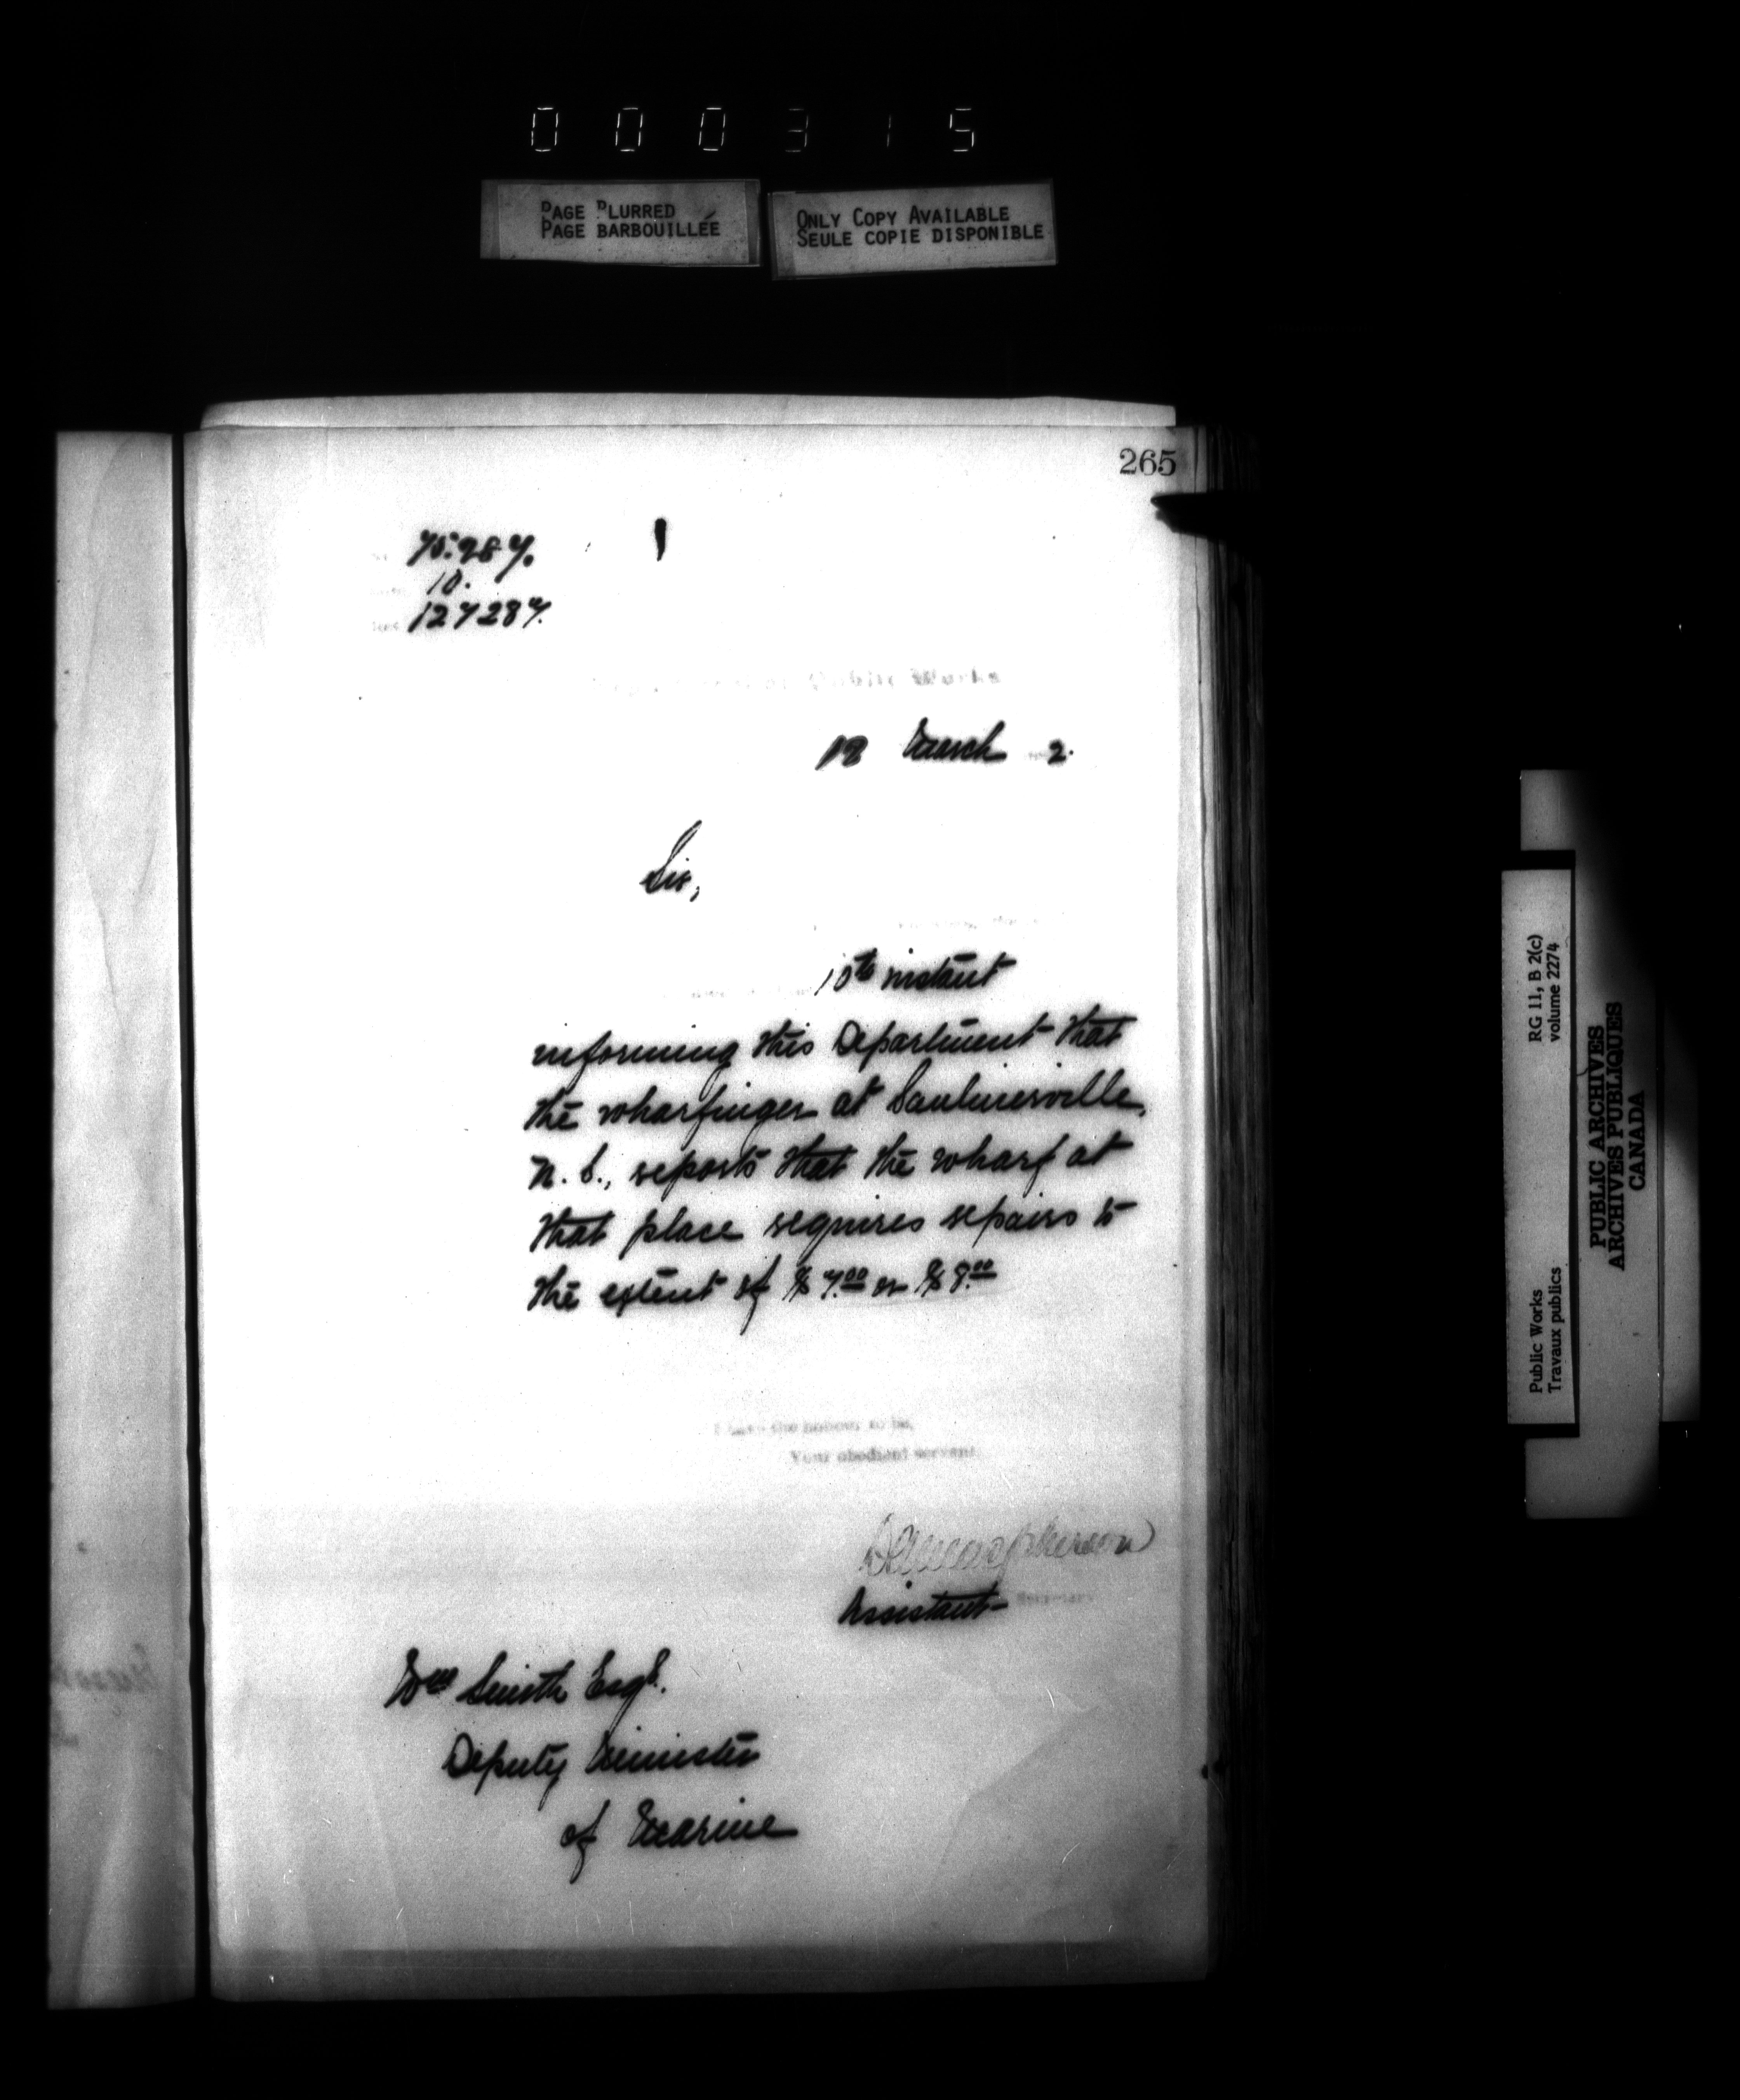 000315
PAGE BLURRED
PAGE BARBOUILLÉE
ONLY COPY AVAILABLE
SEULE COPIE DISPONIBLE
265
10.
127287.
Public Works
18 March 2.
Sir,
10th instant
informing this Department that
the wharfinger at Saulnierville,
N.S., reports that the wharf at
that place requires repairs to
the extent of $7.00 or $8.00
I have the honour to be,
Your obedient servant
Assistant Secretary
Wm Smith Esqr.
Deputy Minister
of Marine
Public Works
Travaux publics
RG 11, B 2(c)
volume 2274
PUBLIC ARCHIVES
ARCHIVES PUBLIQUES
CANADA